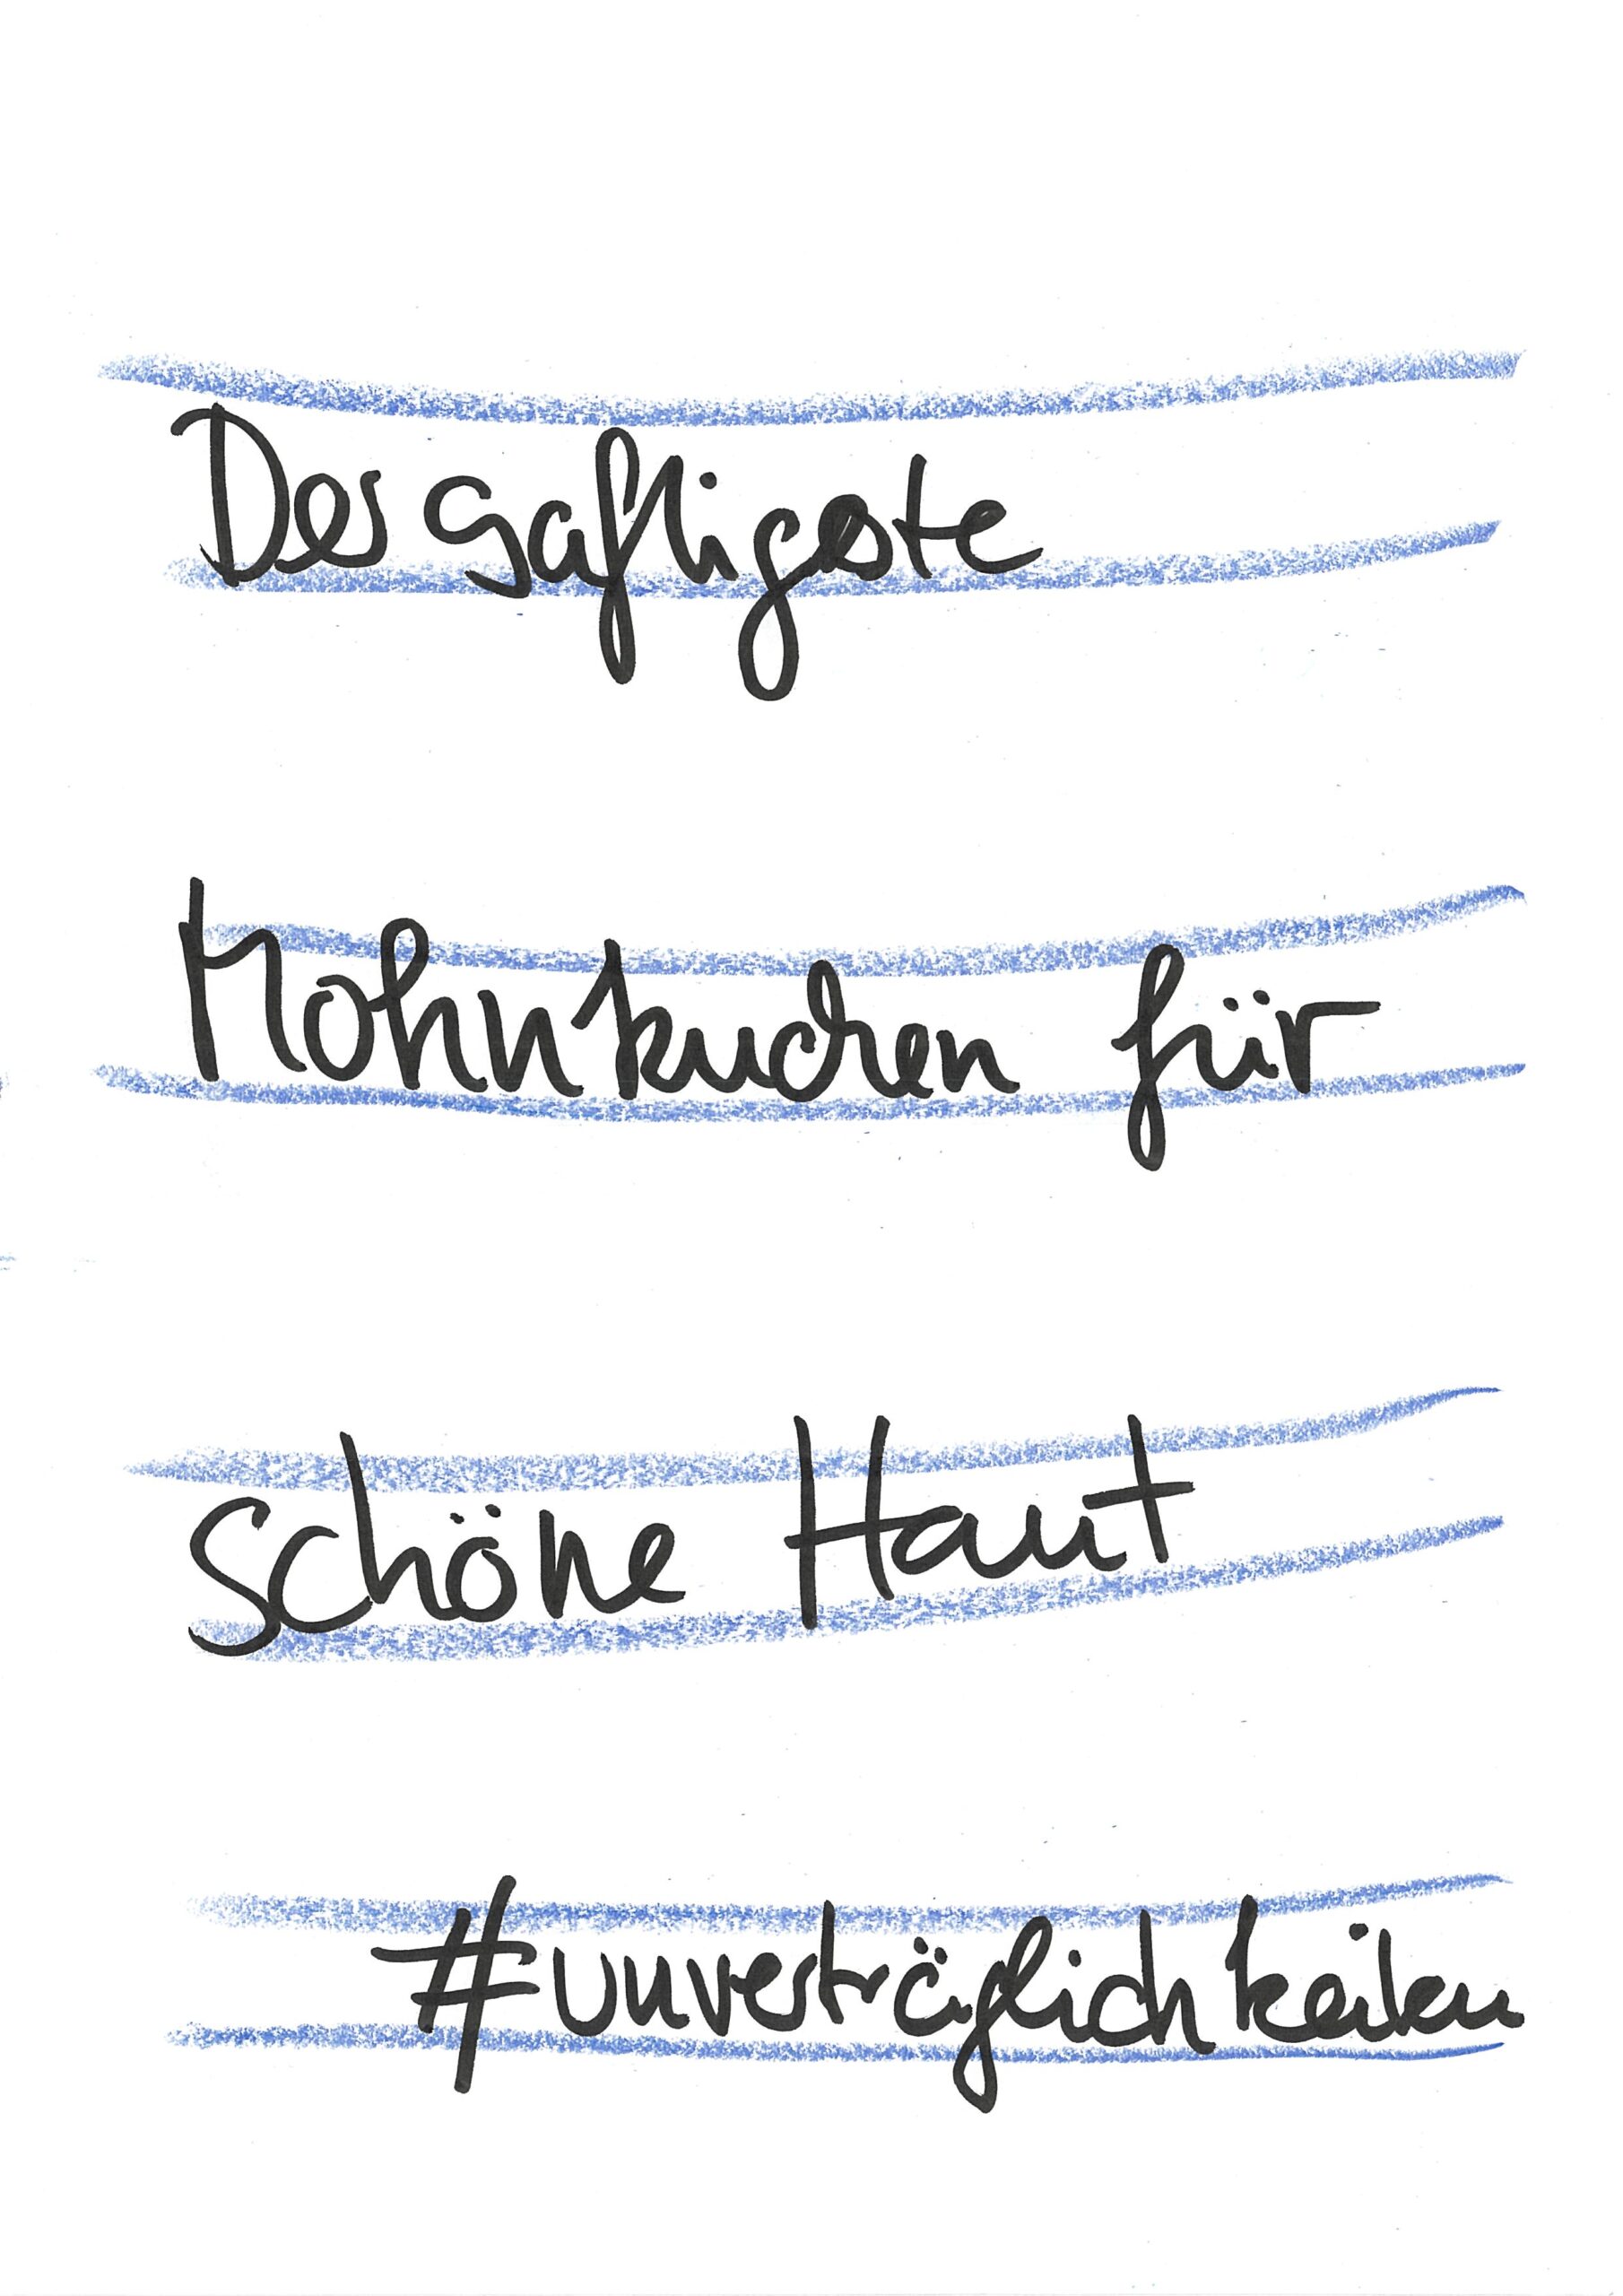 Der saftigste
Mohnkuchen für
schöne Haut
#unverträglichkeiten